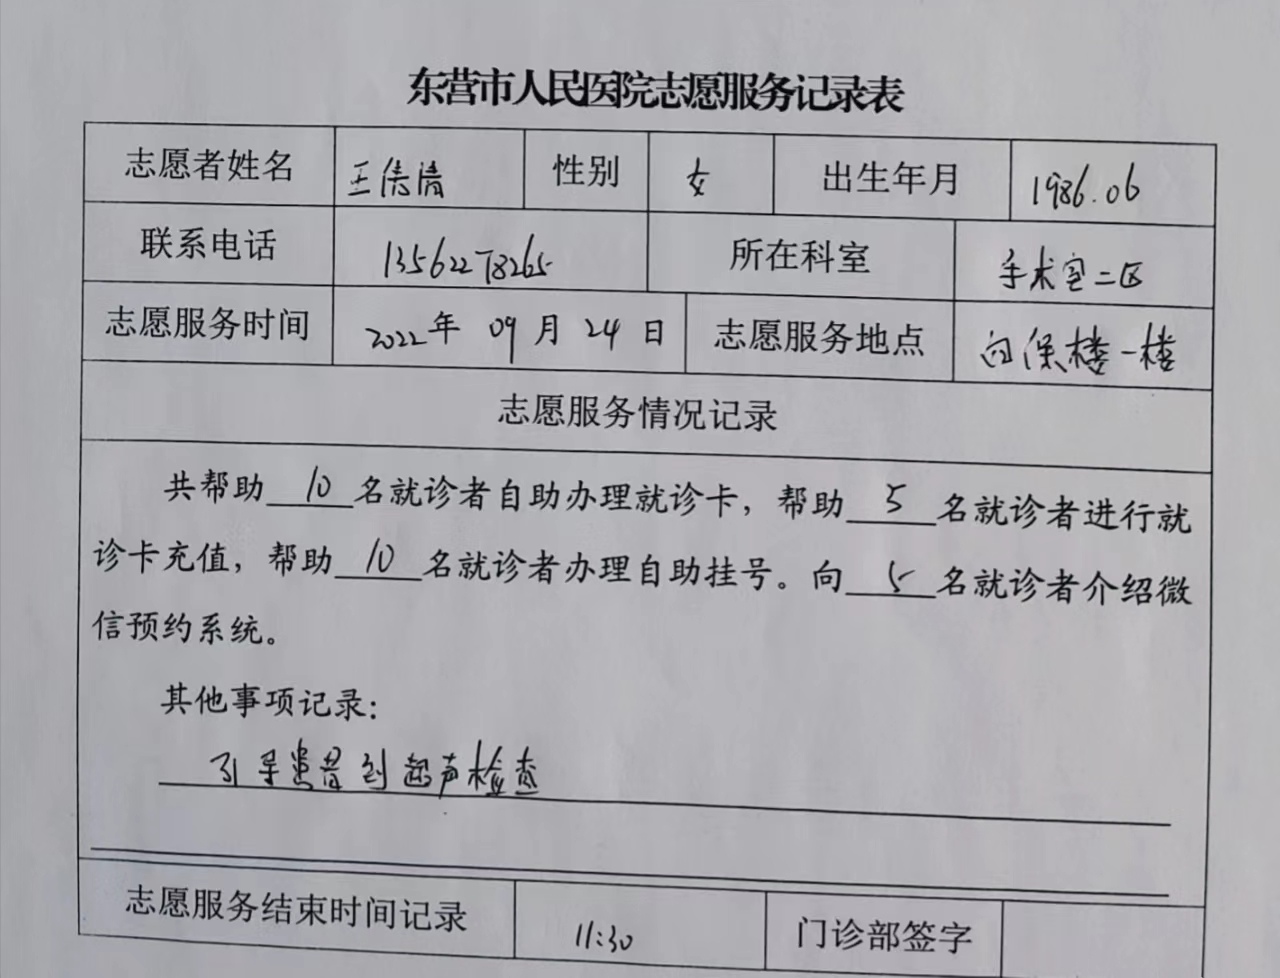 东营市人民医院志愿服务记录表
志愿者姓名 王倩倩 性别 女 出生年月 1986.06
联系电话 13562278265 所在科室 手术室二区
志愿服务时间 2022年 09月 24日 志愿服务地点 保楼一楼
志愿服务情况记录
共帮助 10 名就诊者自助办理就诊卡，帮助 5 名就诊者进行就
诊卡充值，帮助 10 名就诊者办理自助挂号。向 5 名就诊者介绍微
信预约系统。
其他事项记录：
引导患者到超声检查
志愿服务结束时间记录 11:30 门诊部签字